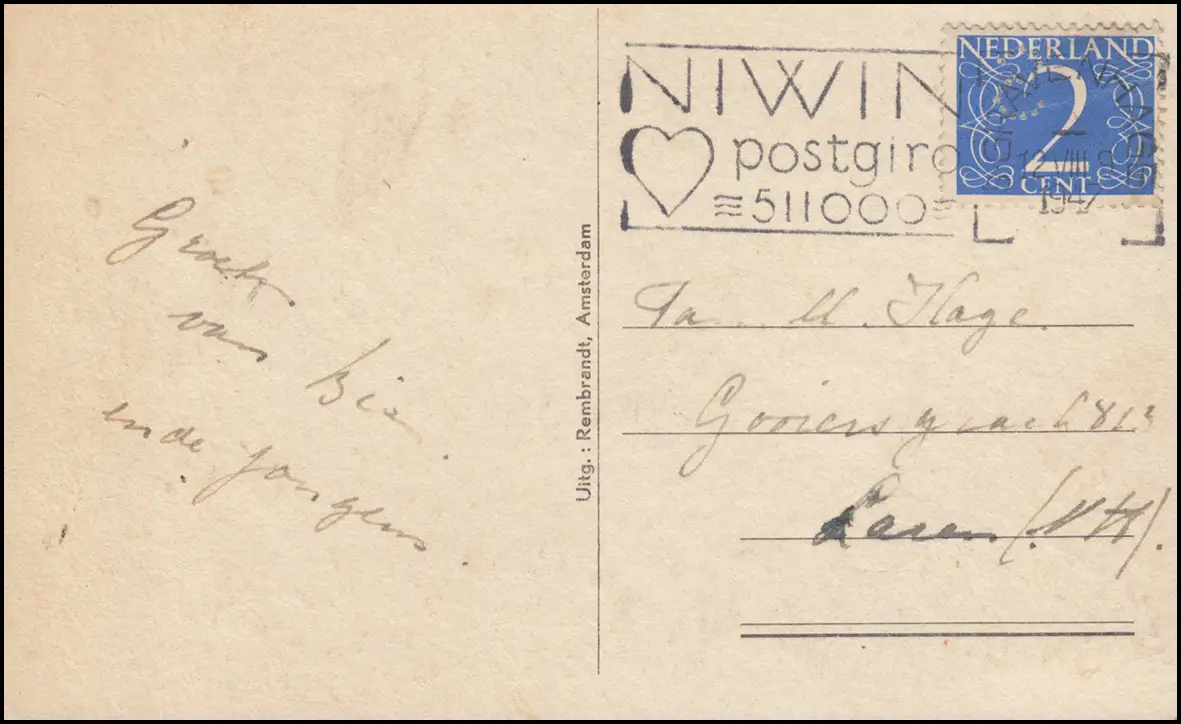 Groeten
van Bie
en de jongens.
Uitg.: Rembrandt, Amsterdam
NIWIN
postgiro
511000
NEDERLAND
2
CENT
'S GRAVENHAGE
12.VIII.9
1947
Fa. M. Hage.
Gooiersgracht
Laren (NH).